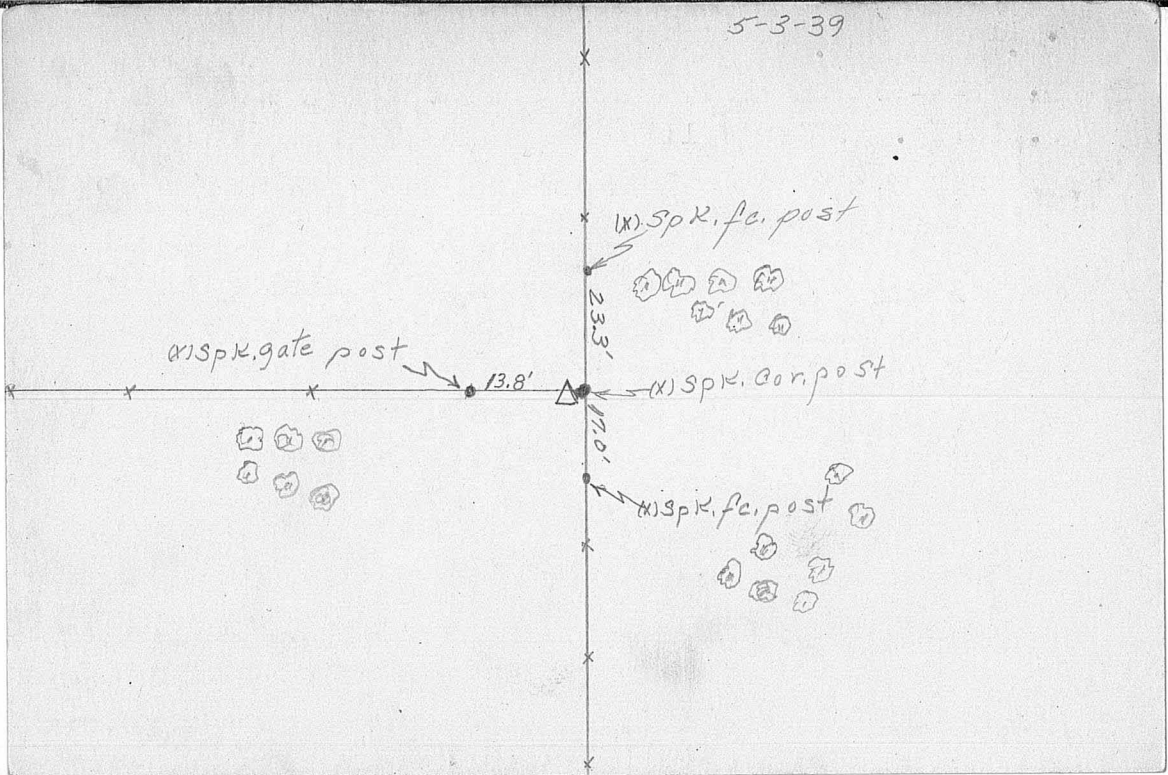 5-3-39
(x) Spk. fc. post
23.3'
(x) Spk. gate post
13.8'
(x) Spk. Cor. post
17.0'
(x) Spk. fc. post